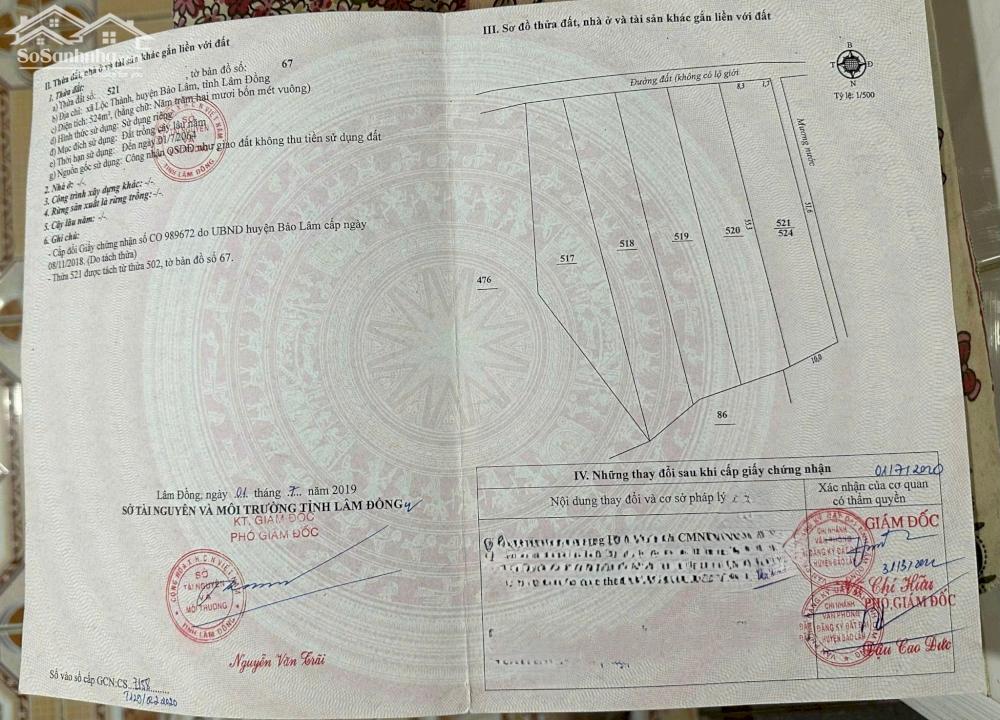 SoSanhnha
II. Thửa đất, nhà ở và tài sản khác gắn liền với đất
1. Thửa đất:
a) Thửa đất số: 521 , tờ bản đồ số: 67
b) Địa chỉ: xã Lộc Thành, huyện Bảo Lâm, tỉnh Lâm Đồng
c) Diện tích: 524m², (bằng chữ: Năm trăm hai mươi bốn mét vuông)
d) Hình thức sử dụng: Sử dụng riêng
đ) Mục đích sử dụng: Đất trồng cây lâu năm
e) Thời hạn sử dụng: Đến ngày 01/7/2064
g) Nguồn gốc sử dụng: Công nhận QSDĐ như giao đất không thu tiền sử dụng đất
2. Nhà ở: -/-
3. Công trình xây dựng khác: -/-
4. Rừng sản xuất là rừng trồng: -/-
5. Cây lâu năm: -/-
6. Ghi chú:
- Cấp đổi Giấy chứng nhận số CO 989672 do UBND huyện Bảo Lâm cấp ngày
08/11/2018. (Do tách thửa)
- Thửa 521 được tách từ thửa 502, tờ bản đồ số 67.
Lâm Đồng, ngày 01 tháng 7 năm 2019
SỞ TÀI NGUYÊN VÀ MÔI TRƯỜNG TỈNH LÂM ĐỒNG
KT. GIÁM ĐỐC
PHÓ GIÁM ĐỐC
SỞ
TÀI NGUYÊN
VÀ
MÔI TRƯỜNG
TỈNH LÂM ĐỒNG
Nguyễn Văn Trãi
Số vào sổ cấp GCN:CS
III. Sơ đồ thửa đất, nhà ở và tài sản khác gắn liền với đất
B
T
Đ
N
Tỷ lệ: 1/500
Đường đất (không có lộ giới
8,3
1,7
Mương nước
31,6
35,3
521
524
520
519
518
517
476
10,0
86
IV. Những thay đổi sau khi cấp giấy chứng nhận
01/7/2020
Nội dung thay đổi và cơ sở pháp lý
Xác nhận của cơ quan
có thẩm quyền
GIÁM ĐỐC
CHI NHÁNH
VĂN PHÒNG
ĐĂNG KÝ ĐẤT ĐAI
HUYỆN BẢO LÂM
Chí Hữu
PHÓ GIÁM ĐỐC
CHI NHÁNH
VĂN PHÒNG
ĐĂNG KÝ ĐẤT ĐAI
HUYỆN BẢO LÂM
Đậu Cao Đức